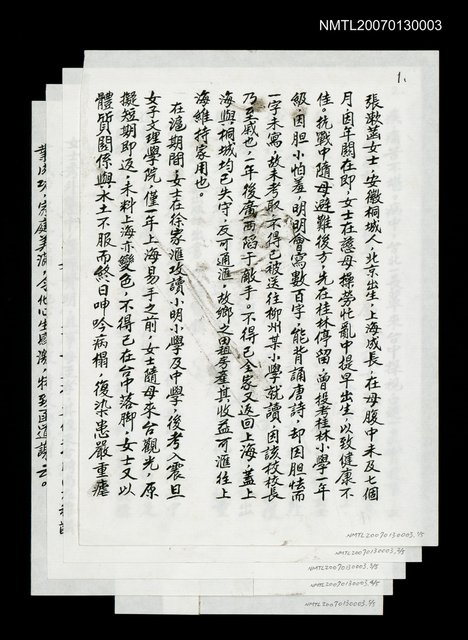 NMTL20070130003
1、
張漱菡女士，安徽桐城人，北京出生，上海成長，在母腹中未及七個
月，因年關在即，女士在慈母操勞忙亂中提早出生，以致健康不
佳。抗戰中隨母避難後方，先在桂林停留，曾投考桂林小學一年
級，因胆小怕羞，明明會寫數百字，能背誦唐詩，却因胆怯而
一字未寫，故未考取，不得已被送往柳州某小學就讀，因該校校長
乃至戚也，二年後廣西陷于敵手。不得已全家又返回上海，蓋上
海與桐城均已失守，反可通滙，故鄉之田租房產其收益可滙往上
海維持家用也。
在滬期間，女士在徐家滙攻讀小明小學及中學，後考入震旦
女子文理學院，僅一年上海易手之前，女士隨母來台觀光，原
擬短期即返，未料上海亦變色，不得已在台中落脚，女士又以
體質關係與水土不服而終日呻吟病榻，復染患嚴重瘧
家庭美滿，令化心生感激，特
道謝云。
NMTL20070130003.1/5
NMTL20070130003.2/5
NMTL20070130003.3/5
NMTL20070130003.4/5
NMTL20070130003.5/5